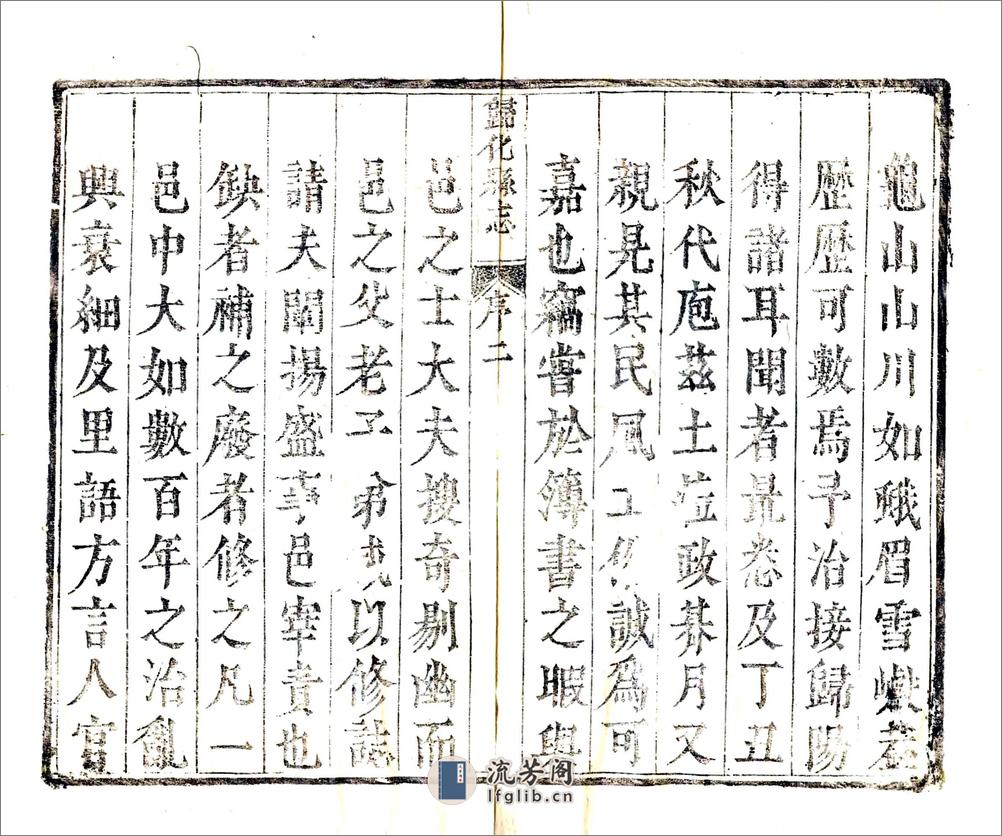 龜山山川如蛾眉雪巘荖
歷歷可數焉予治接歸陽
得諸耳聞者最悉及丁丑
秋代庖茲土蒞政朞月又
親見其民風土俗誠爲可
嘉也竊嘗於簿書之暇與
歸化縣志
序二
邑之士大夫搜奇剔幽而
邑之父老子弟
以修誌
請夫闡揚盛事邑宰責也
缺者補之廢者修之凡一
邑中大如數百年之治亂
興衰細及里語方言人官
流芳阁
lfglib.cn